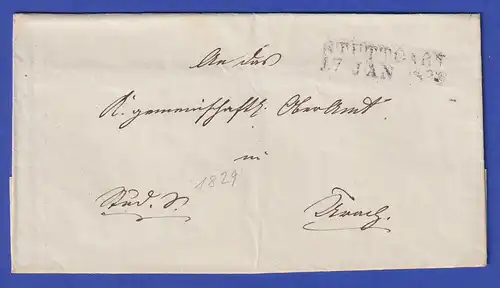 STUTTGART
17 JAN 1829
An das
K. gemeinschaftl. OberAmt
in
1829
Urach.